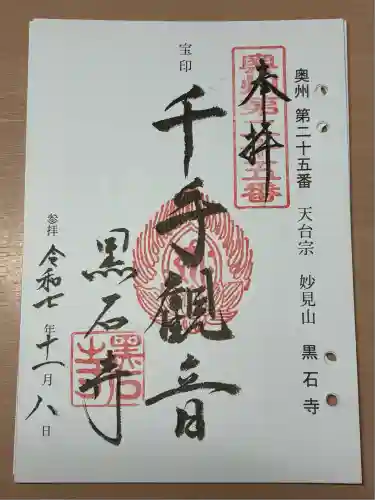 奥州 第二十五番 天台宗 妙見山 黒石寺
奥州第二十五番
奉拝
宝印
千手観音
黒石寺
黒石寺
参拝 令和七年十一月八日